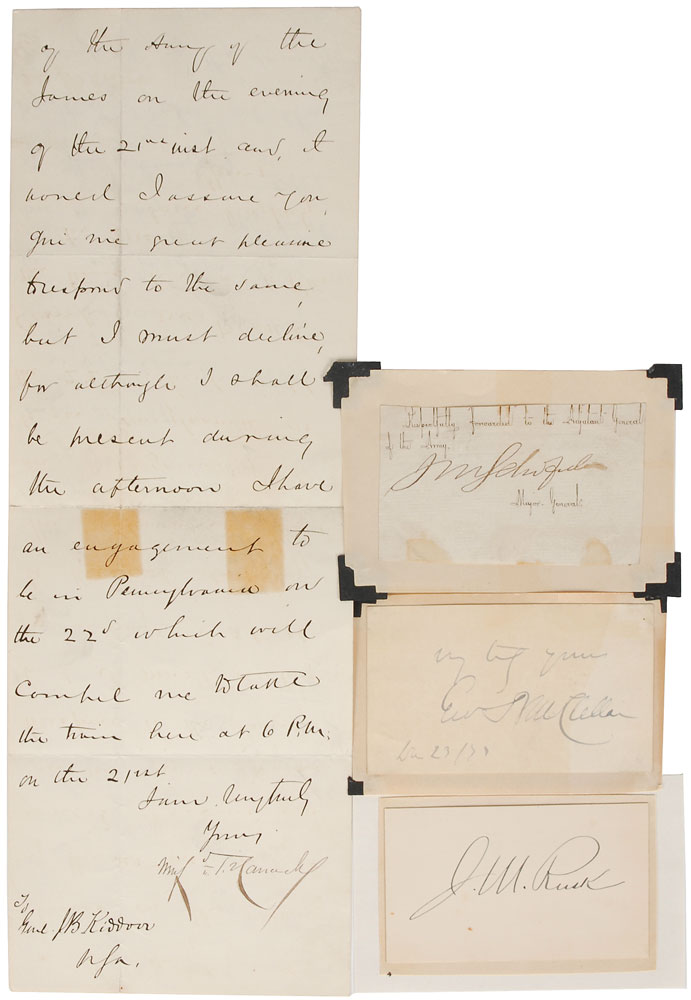 of the Army of the
James on the evening
of the 21st inst and, it
would I assure you,
give me great pleasure
to respond to the same,
but I must decline,
for although I shall
be present during
the afternoon I have
an engagement to
be in Pennsylvania on
the 22d which will
compel me to take
the train here at 6 P.M.
on the 21st
I am Very truly
Yours
Winf'd S. Hancock
To
Genl J B Kiddoo
U.S.A.
Respectfully forwarded to the Adjutant General
of the Army.
J M Schofield
Major General
Very truly yours
Geo B McClellan
J. M. Rusk